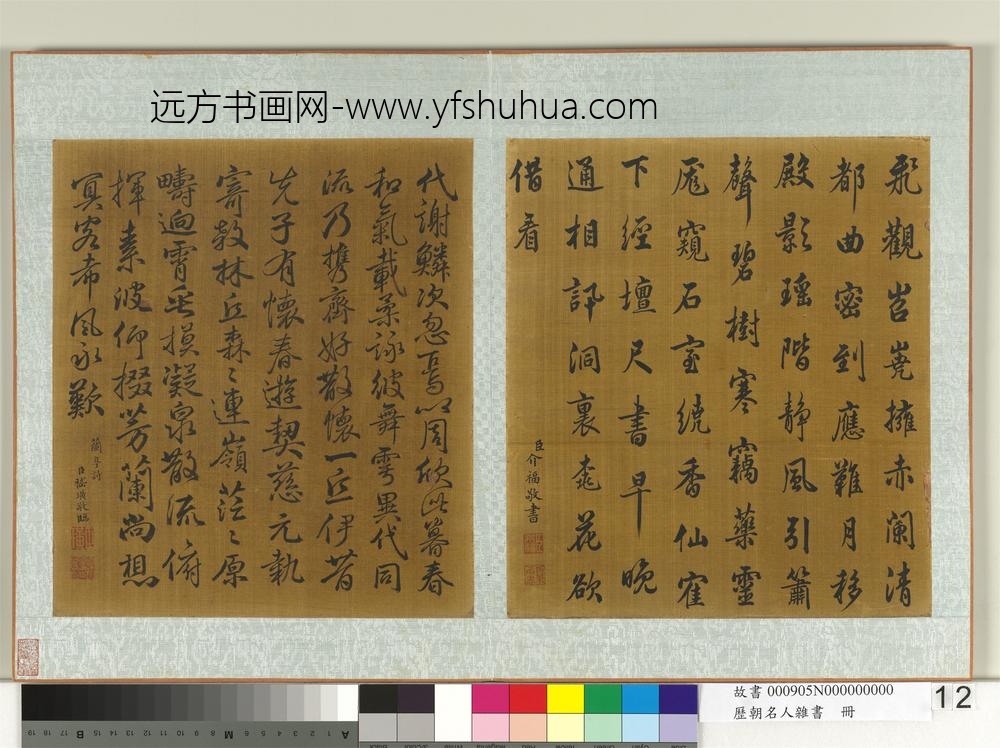 远方书画网-www.yfshuhua.com
飛觀岧嶤擁赤闌清
都曲密到應難月移
殿影瑤階靜風引簫
聲碧樹寒竊藥靈
厖窺石室繞香仙寉
下經壇尺書早晚
通相訊洞裏桃花欲
借看
臣介福敬書
代謝鱗次忽焉以周欣此暮春
和氣載柔詠彼舞雩異代同
流乃攜齊好散懷一丘伊昔
先子有懷春遊契慈元執
寄敖林丘森々連嶺茫々原
疇迥霄垂摸凝泉散流俯
揮素波仰掇芳蘭尚想
冥客希風永歎
蘭亭詩
臣嵇璜敬臨
故書 000905N000000000
歷朝名人雜書 冊
12